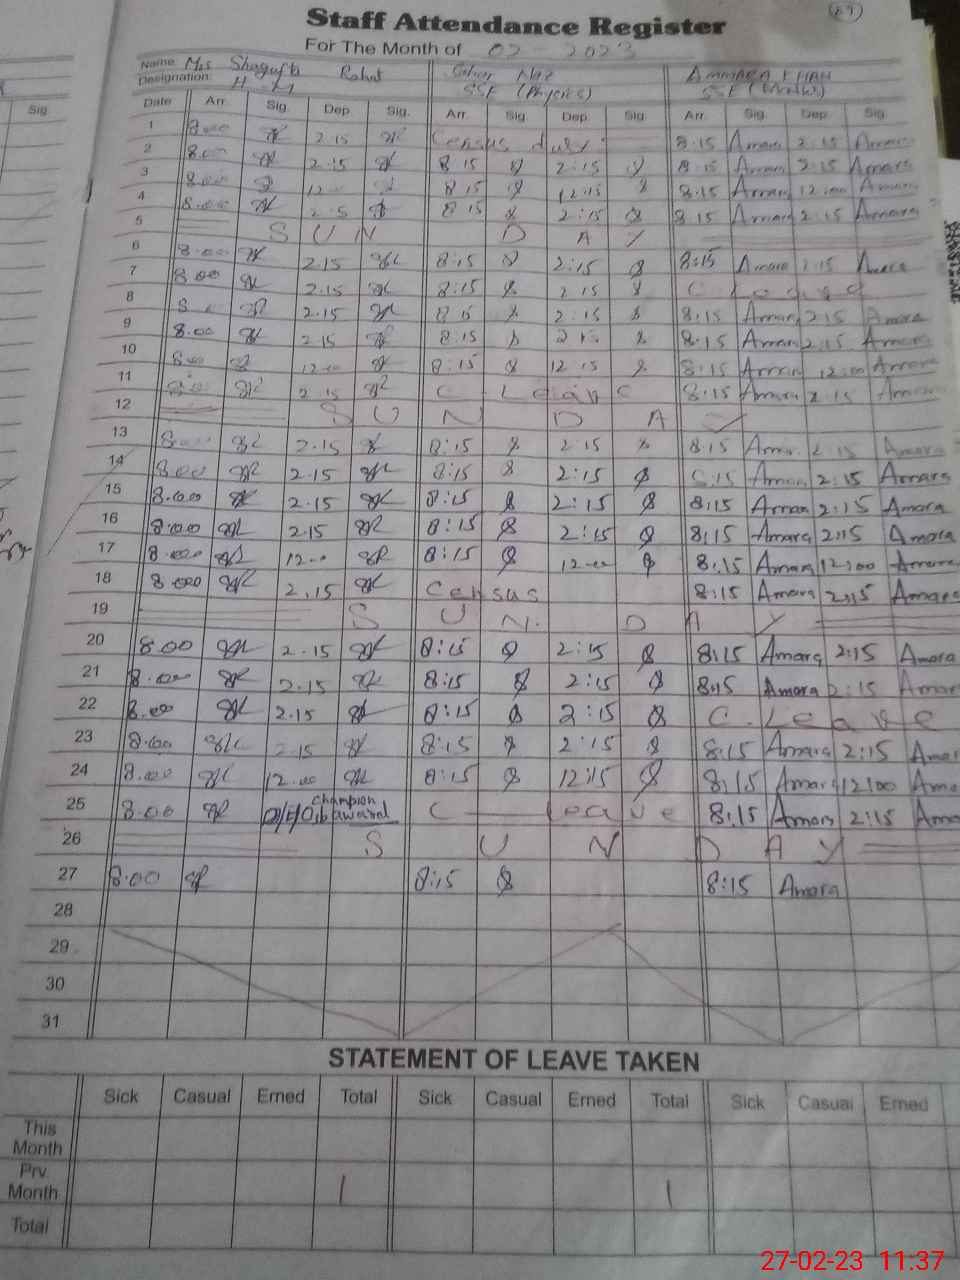 Staff Attendance Register
For The Month of 02 - 2023
Name: Mrs Shagufta Rahat Naz AMMARA KHAN
Designation: H M SSE (Physics) SSE
Sig. Date Arr. Sig. Dep. Sig. Arr. Sig. Dep. Sig. Arr. Sig. Dep. Sig.
1 8.00 2.15 Census duty 8.15 Amara 2:15 Amara
2 8.00 2.15 8 15 2:15 8.15 Amara 2:15 Amara
3 8.00 12.00 8 15 12:15 8:15 Amara 12:00 Amara
4 8.00 2.15 8 15 2:15 8:15 Amara 2:15 Amara
5 S U N D A Y
6 8.00 2.15 8:15 2:15 8:15 Amara 2:15 Amara
7 8.00 2.15 8:15 2 15 C leave
8 2.15 8 15 2:15 8:15 Amara 2:15 Amara
9 8.00 2.15 8:15 2 15 8:15 Amara 2:15 Amara
10 8.00 12.00 8:15 12 15 8:15 Amara 12:00 Amara
11 8.00 2.15 C Leave 8:15 Amara 2:15 Amara
12 S U N D A Y
13 8.00 2.15 8:15 2 15 8:15 Amara 2:15 Amara
14 8.00 2.15 8:15 2:15 8:15 Amara 2:15 Amara
15 8.00 2.15 8:15 2:15 8:15 Amara 2:15 Amara
16 8.00 2.15 8:15 2:15 8:15 Amara 2:15 Amara
17 8.00 12.00 8:15 12.00 8:15 Amara 12:00 Amara
18 8.00 2.15 Census 8:15 Amara 2:15 Amara
19 S U N. D A Y
20 8.00 2.15 8:15 2:15 8:15 Amara 2:15 Amara
21 8.00 2.15 8:15 2:15 8:15 Amara 2:15 Amara
22 8.00 2.15 8:15 2:15 C. Leave
23 8.00 2.15 8:15 2:15 8:15 Amara 2:15 Amar
24 8.00 12.00 8:15 12:15 8:15 Amara 12:00 Ama
25 8.00 champion award C leave 8:15 Amara 2:15 Ama
26 S U N D A Y
27 8.00 8:15 8:15 Amara
28
29
30
31
STATEMENT OF LEAVE TAKEN
Sick Casual Erned Total Sick Casual Erned Total Sick Casual Erned
This Month
Prv. Month 1 1
Total
27-02-23 11:37